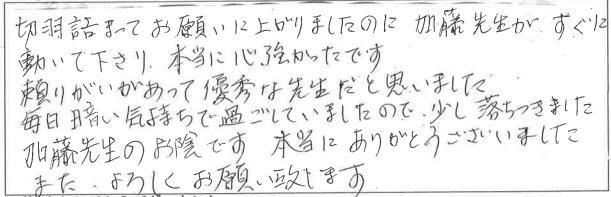 切羽詰まってお願いに上がりましたのに 加藤先生が、すぐに
動いて下さり、本当に心強かったです
頼りがいがあって優秀な先生だと思いました
毎日暗い気持ちで過ごしていましたので、少し落ちつきました
加藤先生のお陰です 本当にありがとうございました
また、よろしくお願い致します